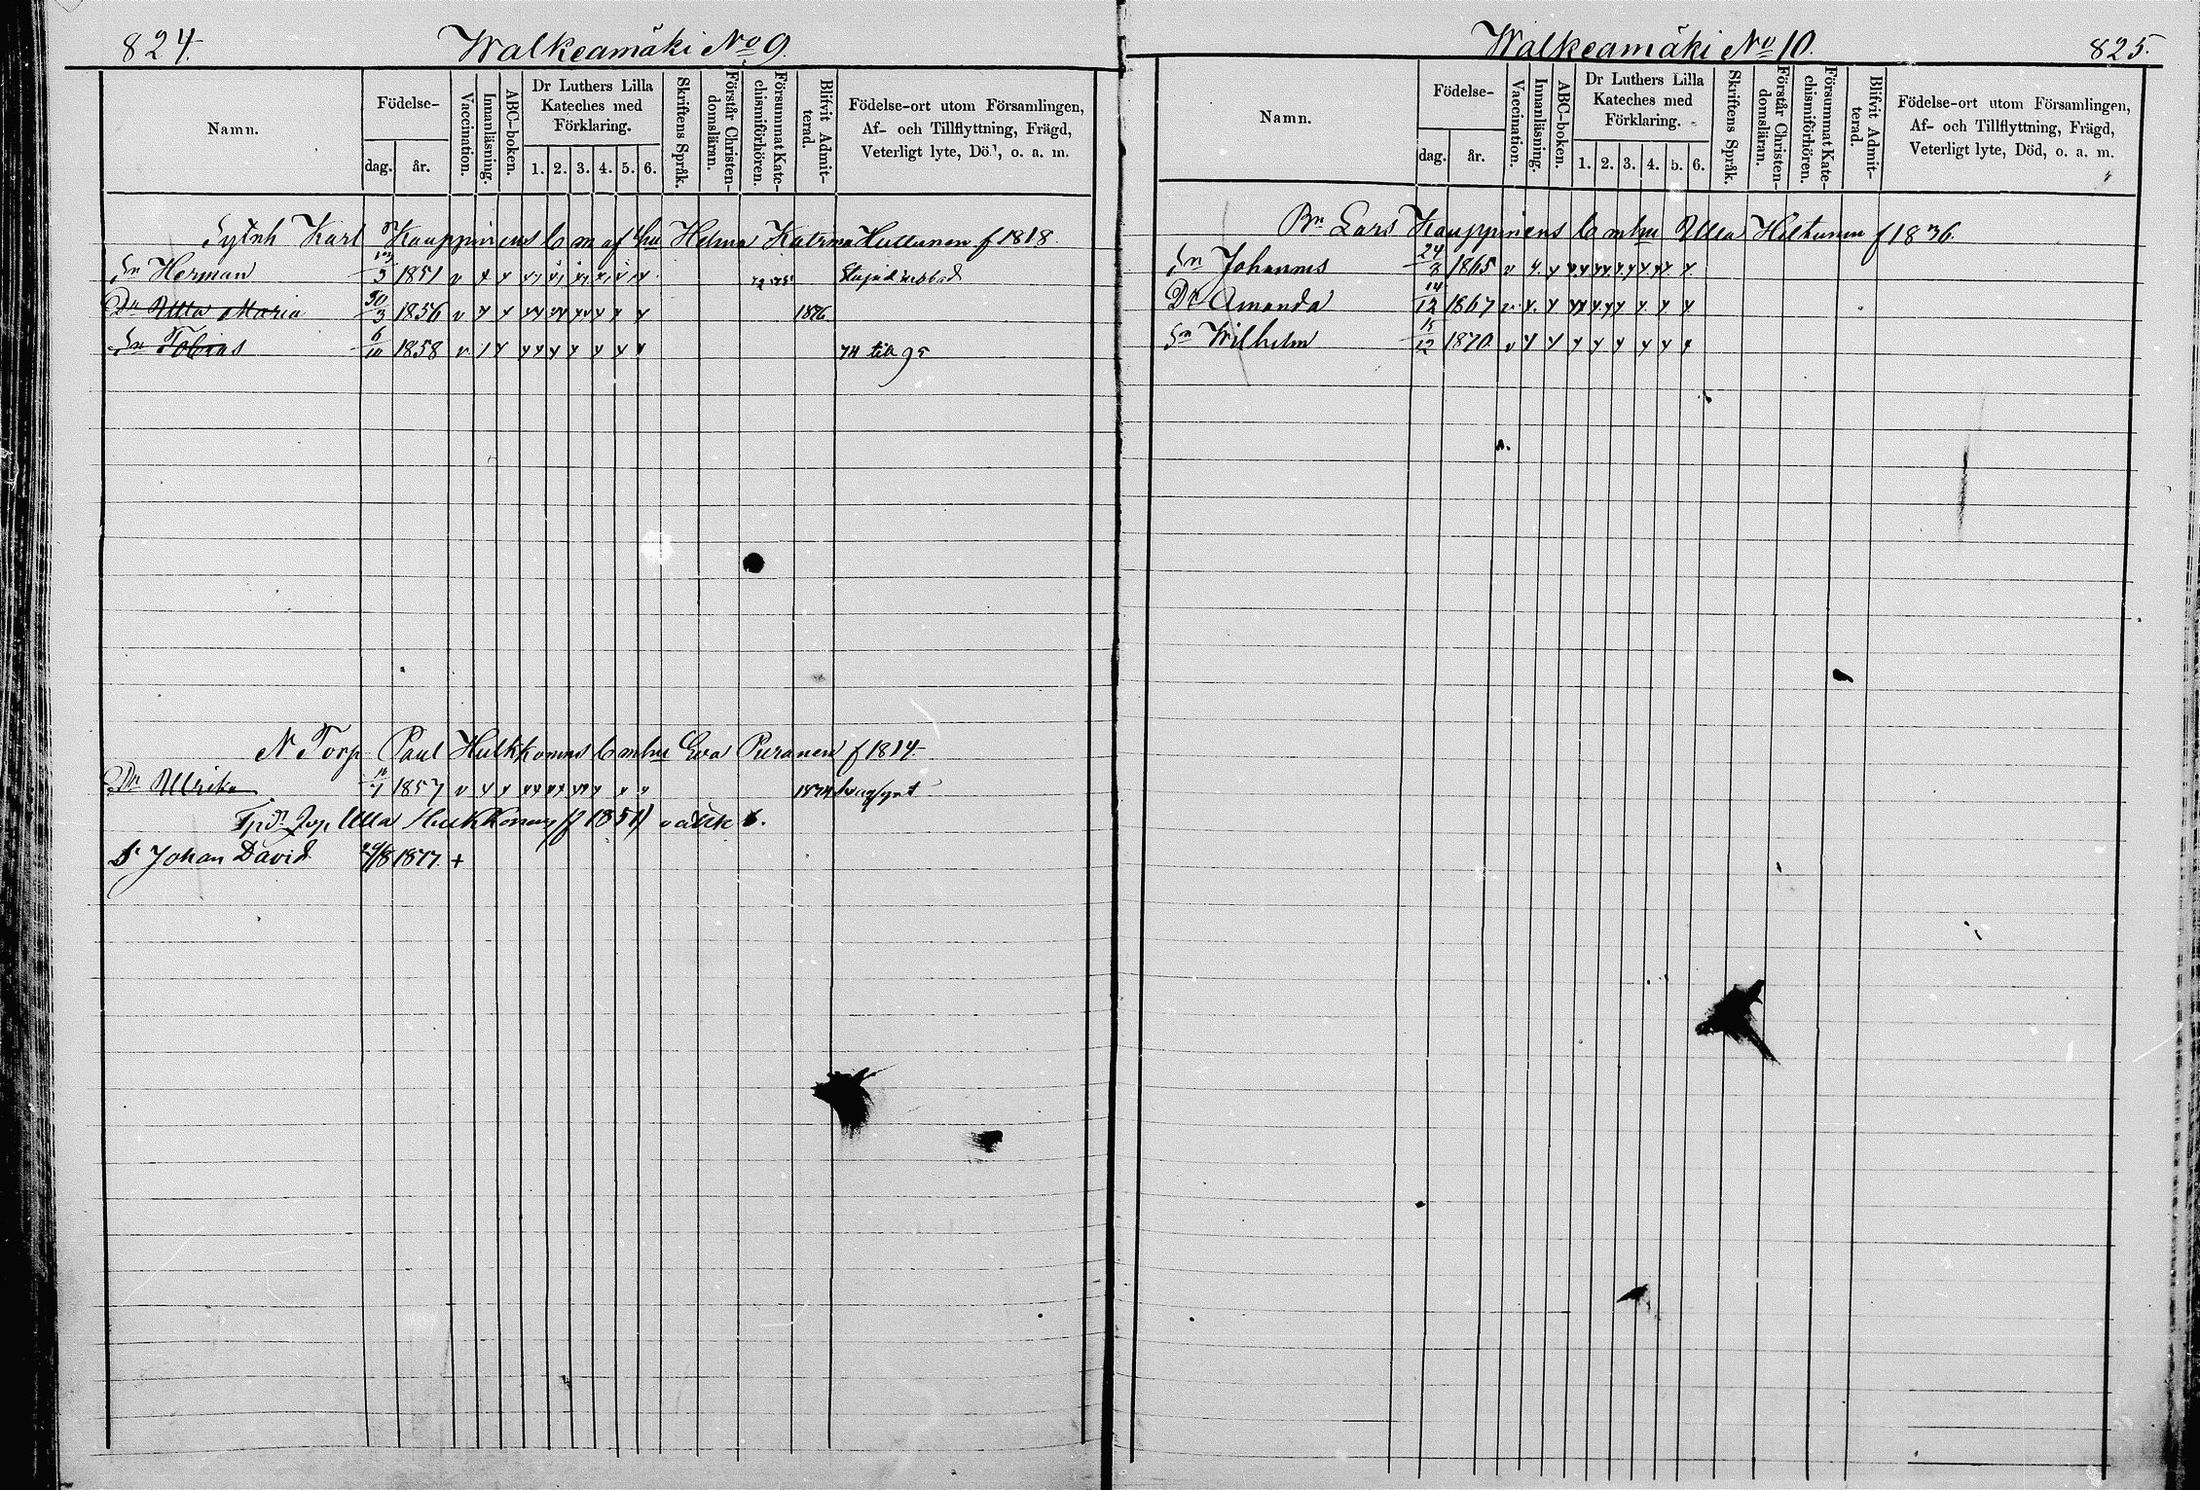 824.
Walkeamäki No 9.
Namn.
Födelse-
dag. år.
Vaccination.
Innanläsning.
ABC-boken.
Dr Luthers Lilla
Kateches med
Förklaring.
1. 2. 3. 4. 5. 6.
Skriftens Språk.
Förstår Christen-
domsläran.
Försummat Kate-
chismiförhören.
Blifvit Admit-
terad.
Födelse-ort utom Församlingen,
Af- och Tillflyttning, Frägd,
Veterligt lyte, Död, o. a. m.
Karl Kauppinens b m af hu Helma Katrina Huttunen f 1818.
Sn Herman 13/3 1851 v
Dr Ulla Maria 30/3 1856 v 1876
Sn Tobias 6/10 1858 v 74 till 95
N Torp Paul Hulkkonens b m hu Eva Puranen f 1814.
Dr Ullrika 1857 v 1874
Ulla Hulkkonens (f 1851)
S. Johan David 29/8 1877. +
Walkeamäki No 10.
825.
Namn.
Födelse-
dag. år.
Vaccination.
Innanläsning.
ABC-boken.
Dr Luthers Lilla
Kateches med
Förklaring.
1. 2. 3. 4. 5. 6.
Skriftens Språk.
Förstår Christen-
domsläran.
Försummat Kate-
chismiförhören.
Blifvit Admit-
terad.
Födelse-ort utom Församlingen,
Af- och Tillflyttning, Frägd,
Veterligt lyte, Död, o. a. m.
Bn Lars Kauppinens b m hu Ulla Hiltunen f 1836.
Sn Johannes 24/8 1865 v
Dr Amanda 14/12 1867 v
Sn Wilhelm 15/12 1870. v